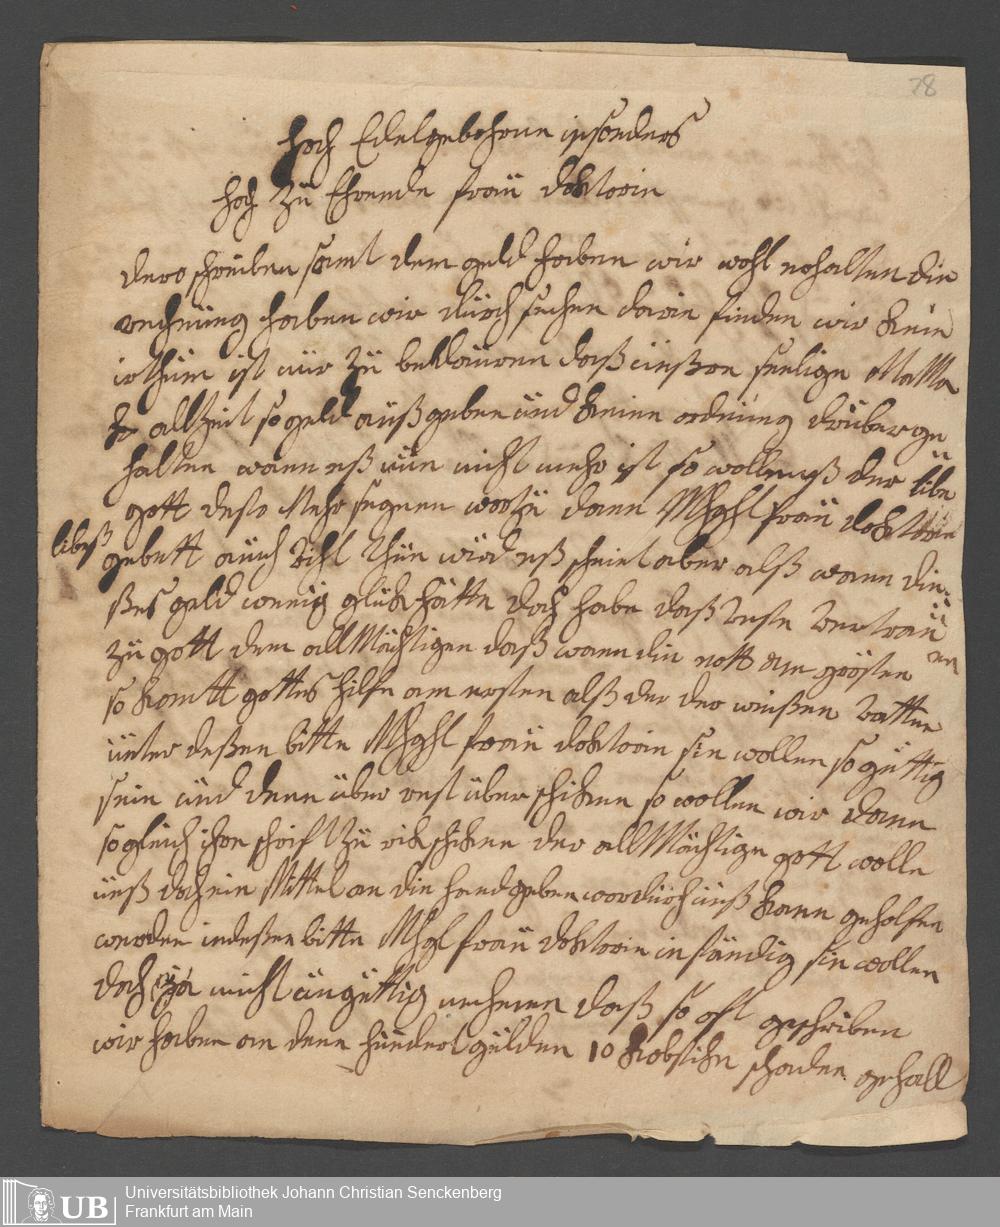 78
hoch Edelgebohrne insonders
hoch zu Ehrende frau doktorin
dero schreiben samt dem geld haben wir wohl erhalten die
rechnung haben wir durch sehen darin finden wir kein
irthum ist nur zu bethauren daß unßere seelige MaMa
allzeit so geld außgeben und keine ordnung drüber ge
halten wann eß nun nicht mehr ist so wolle unß der libe
gott desto Mehr segnen worzu dann Mhghl frau doktorin
libeß
gebett auch vihl thun wird eß scheint aber alß wann die
ßes geld wenig glük hätte doch habe daß veste vertrau
en
zu gott dem allMächtigen daß wann die nott am grösten
so komtt gottes hilfe am ersten alß der der weißen vatter
unter deßen bitte Mhghl frau doktorin sie wollen so güttig
sein und denn über rest über schiken so wollen wir dann
sogleich ihre schrifft zu rik schiken der allMächtige gott wolle
unß doch ein Mittel an die hand geben wordurch unß kann geholfen
werden indeßen bitte Mhgl frau doktorin inständig sie wollen
doch ja nicht unguttig nehmen daß so oft geschriben
wir haben an denn hundert gulden 10 kobstike schaden gehatt
Universitätsbibliothek Johann Christian Senckenberg
Frankfurt am Main
UB